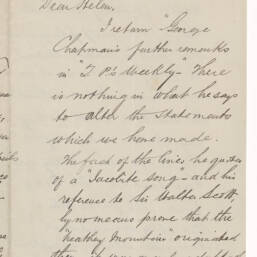 Dear Helen,
I return "George
Chapman's further remarks
in "T. P's Weekly" - There
is nothing in what he says
to alter the statements
which we have made.
The fact of the lines he quotes
of a "Jacobite song" - and his
reference to Sir Walter Scott,
by no means prove that the
"Heathey Mountains" originated